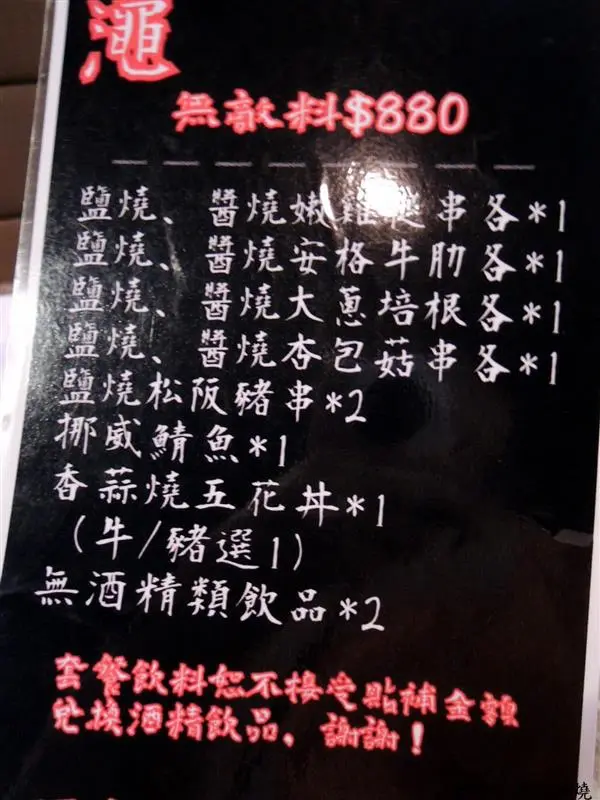 澠
無敵料$880
鹽燒、醬燒嫩雞腿串各*1
鹽燒、醬燒安格牛肋各*1
鹽燒、醬燒大蔥培根各*1
鹽燒、醬燒杏包菇串各*1
鹽燒松阪豬串*2
挪威鯖魚*1
香蒜燒五花丼*1
(牛/豬選1)
無酒精類飲品*2
套餐飲料恕不接受點補金額
兌換酒精飲品，謝謝！
燒